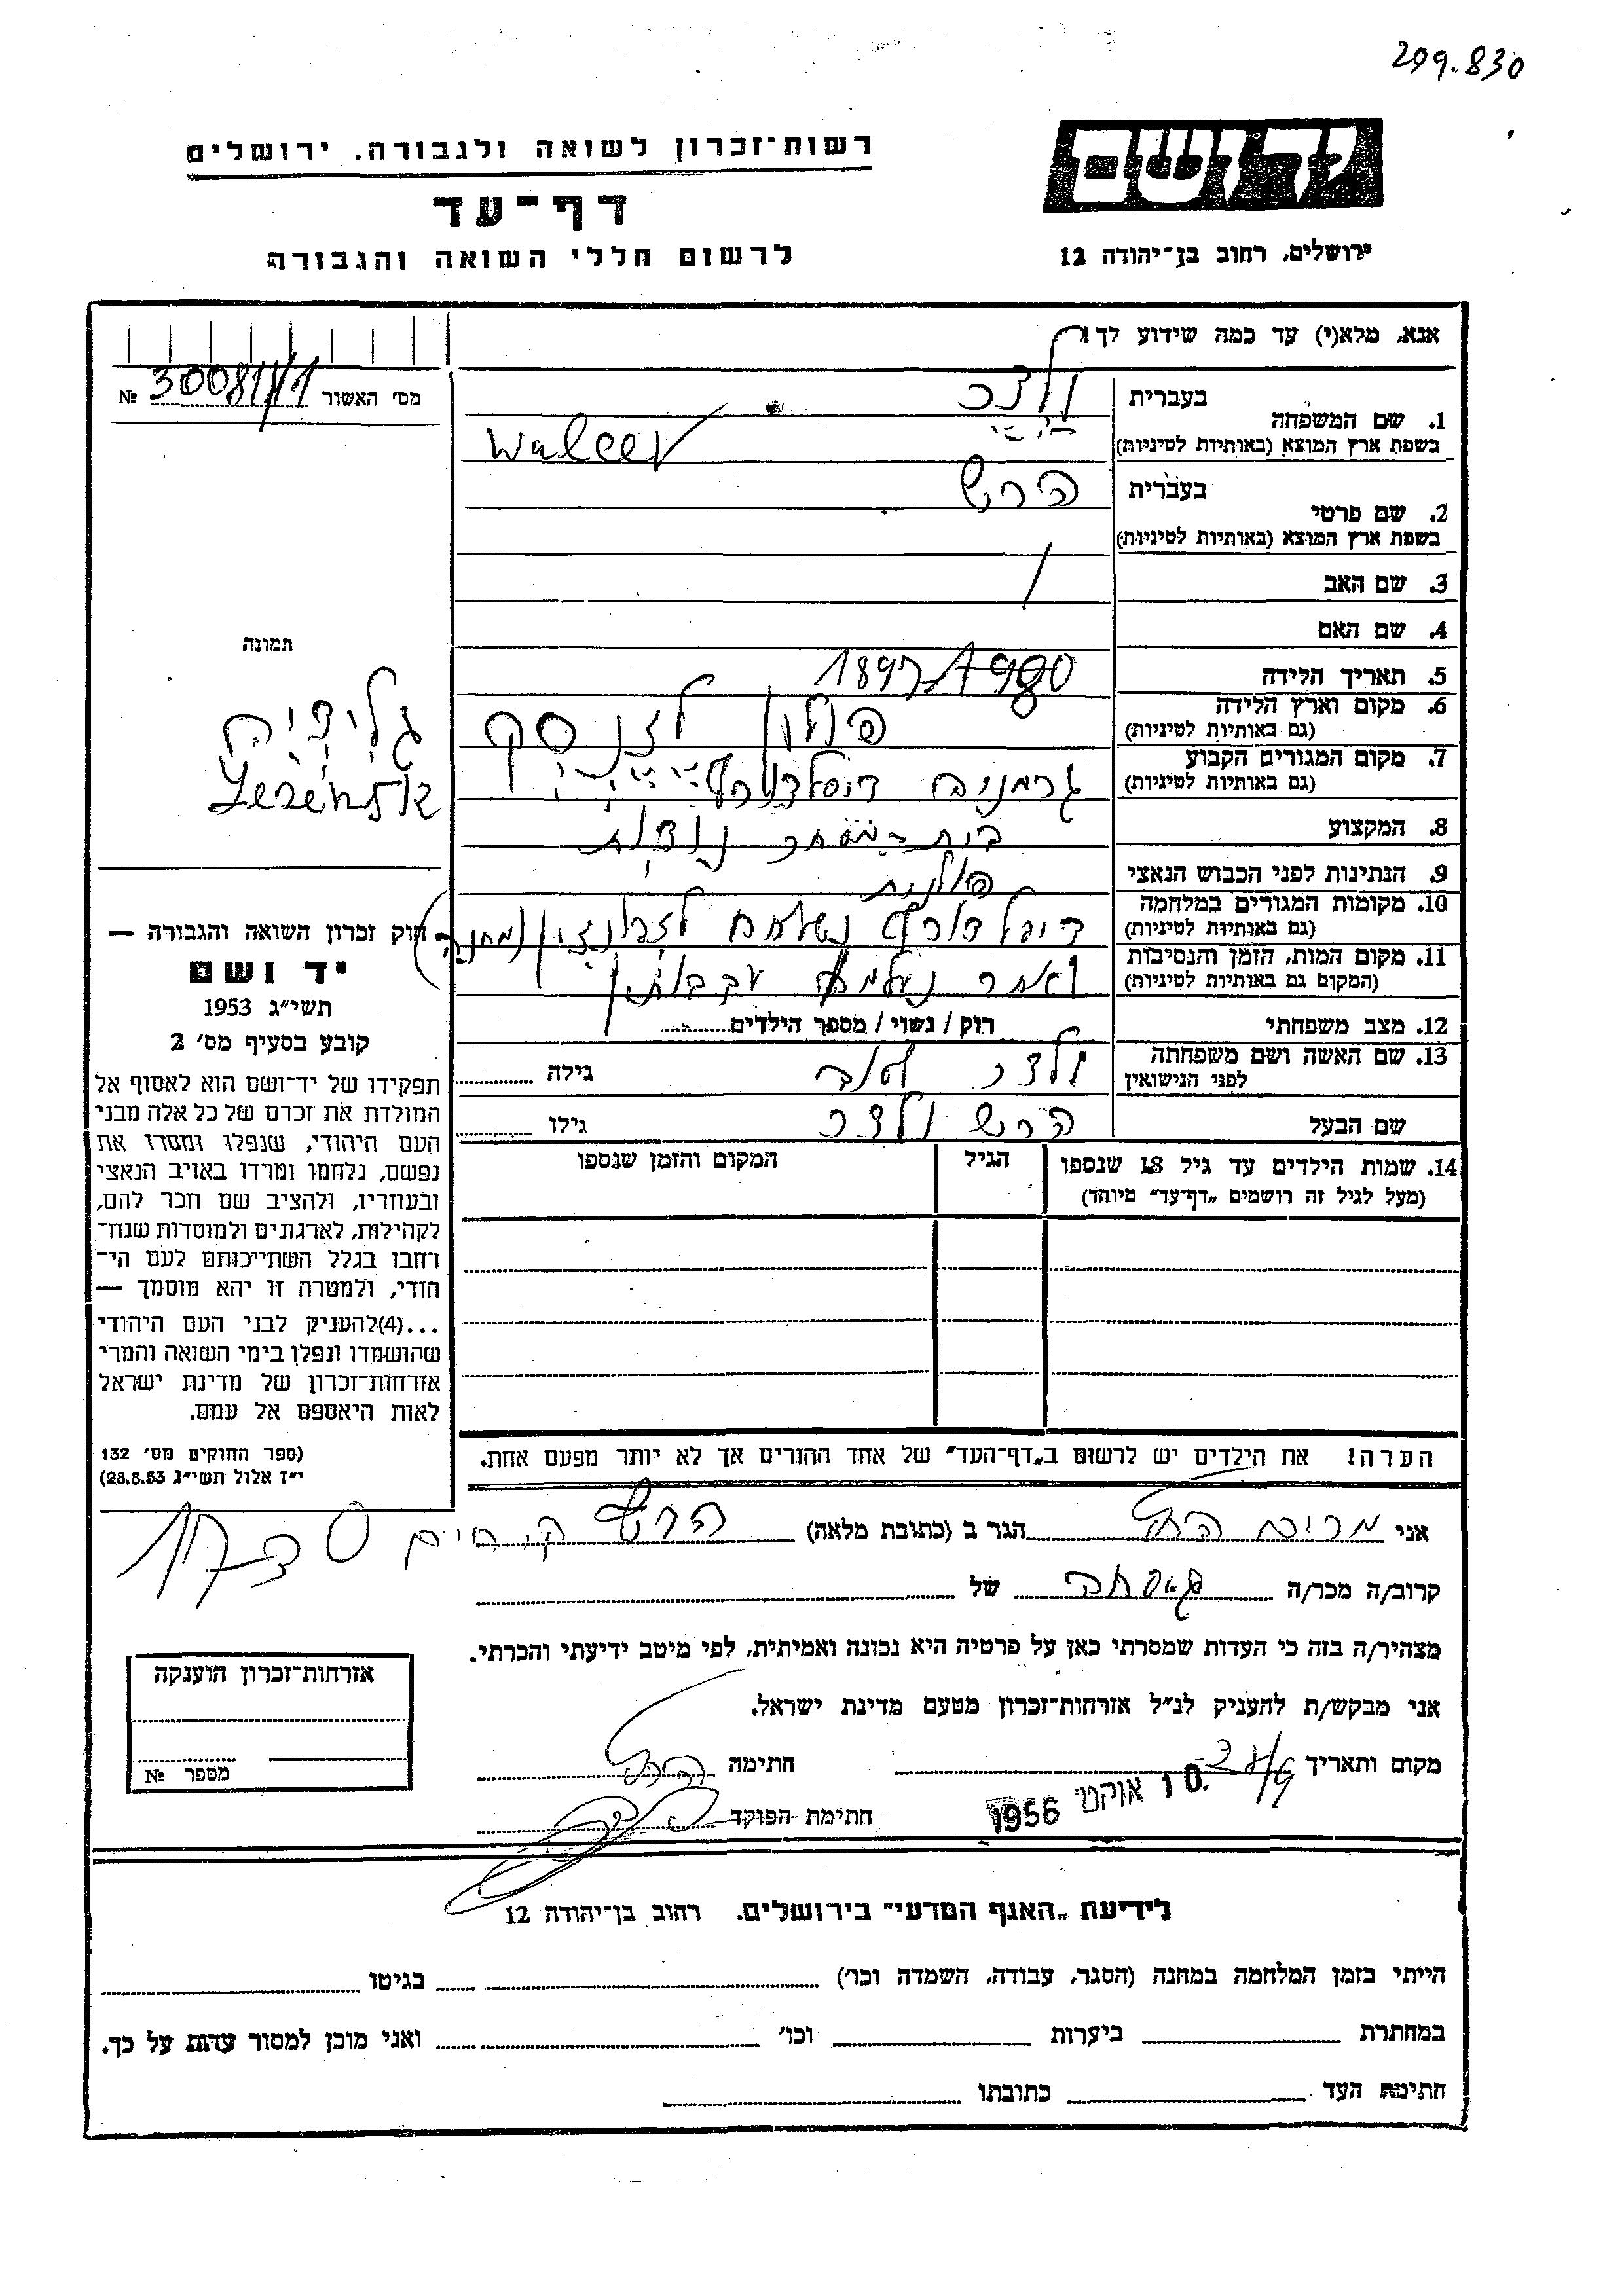 299.830
יד ושם
רשות־זכרון לשואה ולגבורה, ירושלים
דף־עד
לרשום חללי השואה והגבורה
ירושלים, רחוב בן־יהודה 12
אנא, מלא(י) עד כמה שידוע לך!
מס' האשור 30081/1 №
1. שם המשפחה
בעברית ולצר
בשפת ארץ המוצא (באותיות לטיניות) Walcer
2. שם פרטי
בעברית הרש
בשפת ארץ המוצא (באותיות לטיניות)
3. שם האב
4. שם האם
5. תאריך הלידה 1897
6. מקום וארץ הלידה
(גם באותיות לטיניות)
פולין
7. מקום המגורים הקבוע
(גם באותיות לטיניות)
גרמניה דיסלדורף
8. המקצוע
בית-מסחר נוצות
9. הנתינות לפני הכבוש הנאצי
פולנית
10. מקומות המגורים במלחמה
(גם באותיות לטיניות)
דיסלדורף נשלח
11. מקום המות, הזמן והנסיבות
(המקום גם באותיות לטיניות)
ואחר נעלמו עקבותיו
12. מצב משפחתי
רוק / נשוי / מספר הילדים
13. שם האשה ושם משפחתה
לפני הנישואין
ולצר
גילה
שם הבעל
הרש ולצר
גילו
תמונה
גליציה
חוק זכרון השואה והגבורה —
יד ושם
תשי״ג 1953
קובע בסעיף מס' 2
תפקידו של יד־ושם הוא לאסוף אל
המולדת את זכרם של כל אלה מבני
העם היהודי, שנפלו ומסרו את
נפשם, נלחמו ומרדו באויב הנאצי
ובעוזריו, ולהציב שם וזכר להם,
לקהילות, לארגונים ולמוסדות שנח־
רחבו בגלל השתייכותם לעם הי־
הודי, ולמטרה זו יהא מוסמך —
...(4)להעניק לבני העם היהודי
שהושמדו ונפלו בימי השואה והמרי
אזרחות־זכרון של מדינת ישראל
לאות היאספם אל עמם.
(ספר החוקים מס' 132
י״ז אלול תשי״ג 28.8.53)
14. שמות הילדים עד גיל 18 שנספו
(מעל לגיל זה רושמים „דף־עד״ מיוחד)
הגיל
המקום והזמן שנספו
הערה! את הילדים יש לרשום ב„דף־העד״ של אחד ההורים אך לא יותר מפעם אחת.
אני מרים הגר ב (כתובת מלאה)
קרוב/ה מכר/ה של
מצהיר/ה בזה כי העדות שמסרתי כאן על פרטיה היא נכונה ואמיתית, לפי מיטב ידיעתי והכרתי.
אני מבקש/ת להעניק לנ״ל אזרחות־זכרון מטעם מדינת ישראל.
מקום ותאריך חתימה
10 אוקט' 1956
חתימת הפוקד
אזרחות־זכרון הוענקה
מספר №
לידיעת „האגף המדעי״ בירושלים, רחוב בן־יהודה 12
הייתי בזמן המלחמה במחנה (הסגר, עבודה, השמדה וכו') בגיטו
במחתרת ביערות וכו' ואני מוכן למסור עדות על כך.
חתימת העד כתובתו